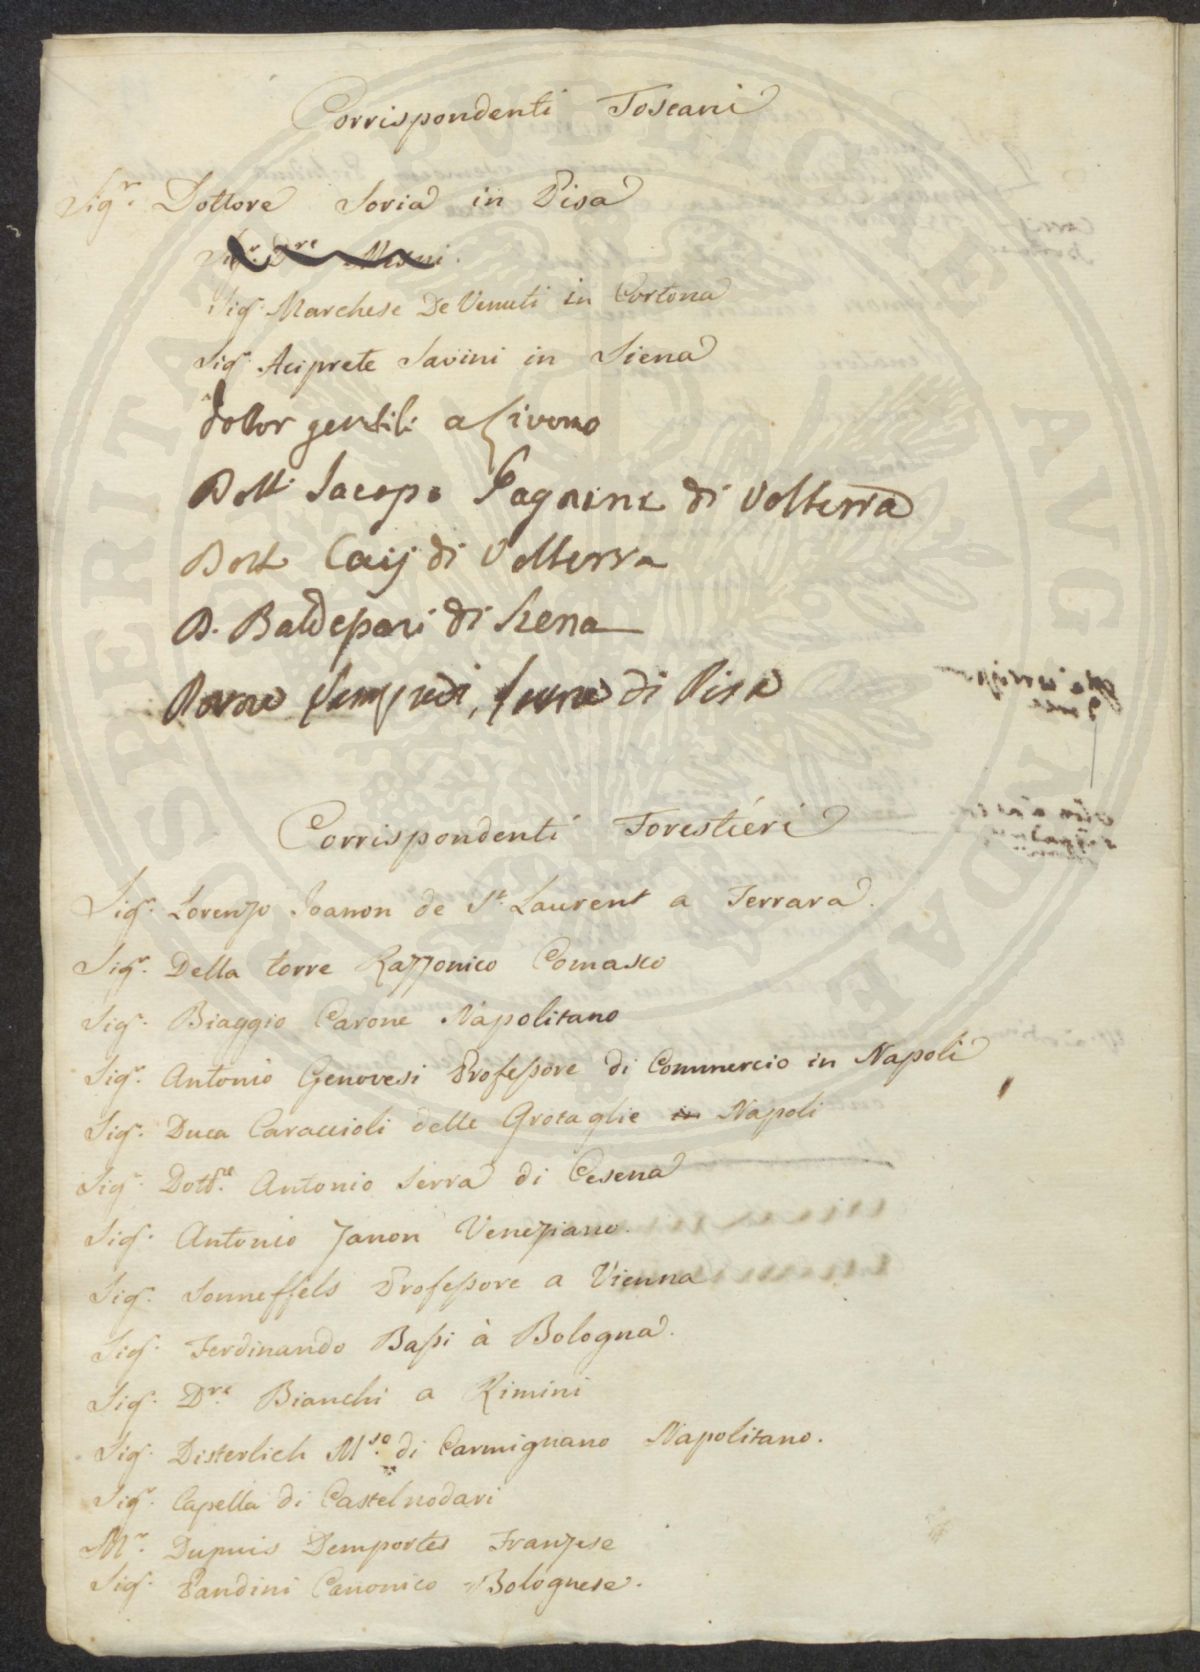 Corrispondenti Toscani
Sigr. Dottore Soria in Pisa
Sigr. Dre
Sigr. Marchese De Venuti in Cortona
Sigr. Aciprete Savini in Siena
dottor gentili a Livorno
Dott. Jacopo Pagnini di Volterra
Dott. Caij di Volterra
D. Baldepari di Siena
di Pisa
Corrispondenti Forestieri
Sigr. Lorenzo Joanon de St. Laurent a Ferrara.
Sigr. Della torre Razzonico Comasco
Sigr. Biaggio Carone Napolitano
Sigr. Antonio Genovesi Professore di Commercio in Napoli
Sigr. Duca Caraccioli delle Grotaglie in Napoli
Sigr. Dottre. Antonio Serra di Cesena
Sigr. Antonio Zanon Veneziano.
Sigr. Sonneffels Professore a Vienna
Sigr. Ferdinando Bassi à Bologna.
Sigr. Dre. Bianchi a Rimini
Sigr. Disterlich Mse. di Carmignano Napolitano.
Sigr. Capella di Castelnodari
Mr. Dupuis Demportes Franzese
Sigr. Pandini Canonico Bolognese.
SPERITAS PVBLICAE AVGVSTAE